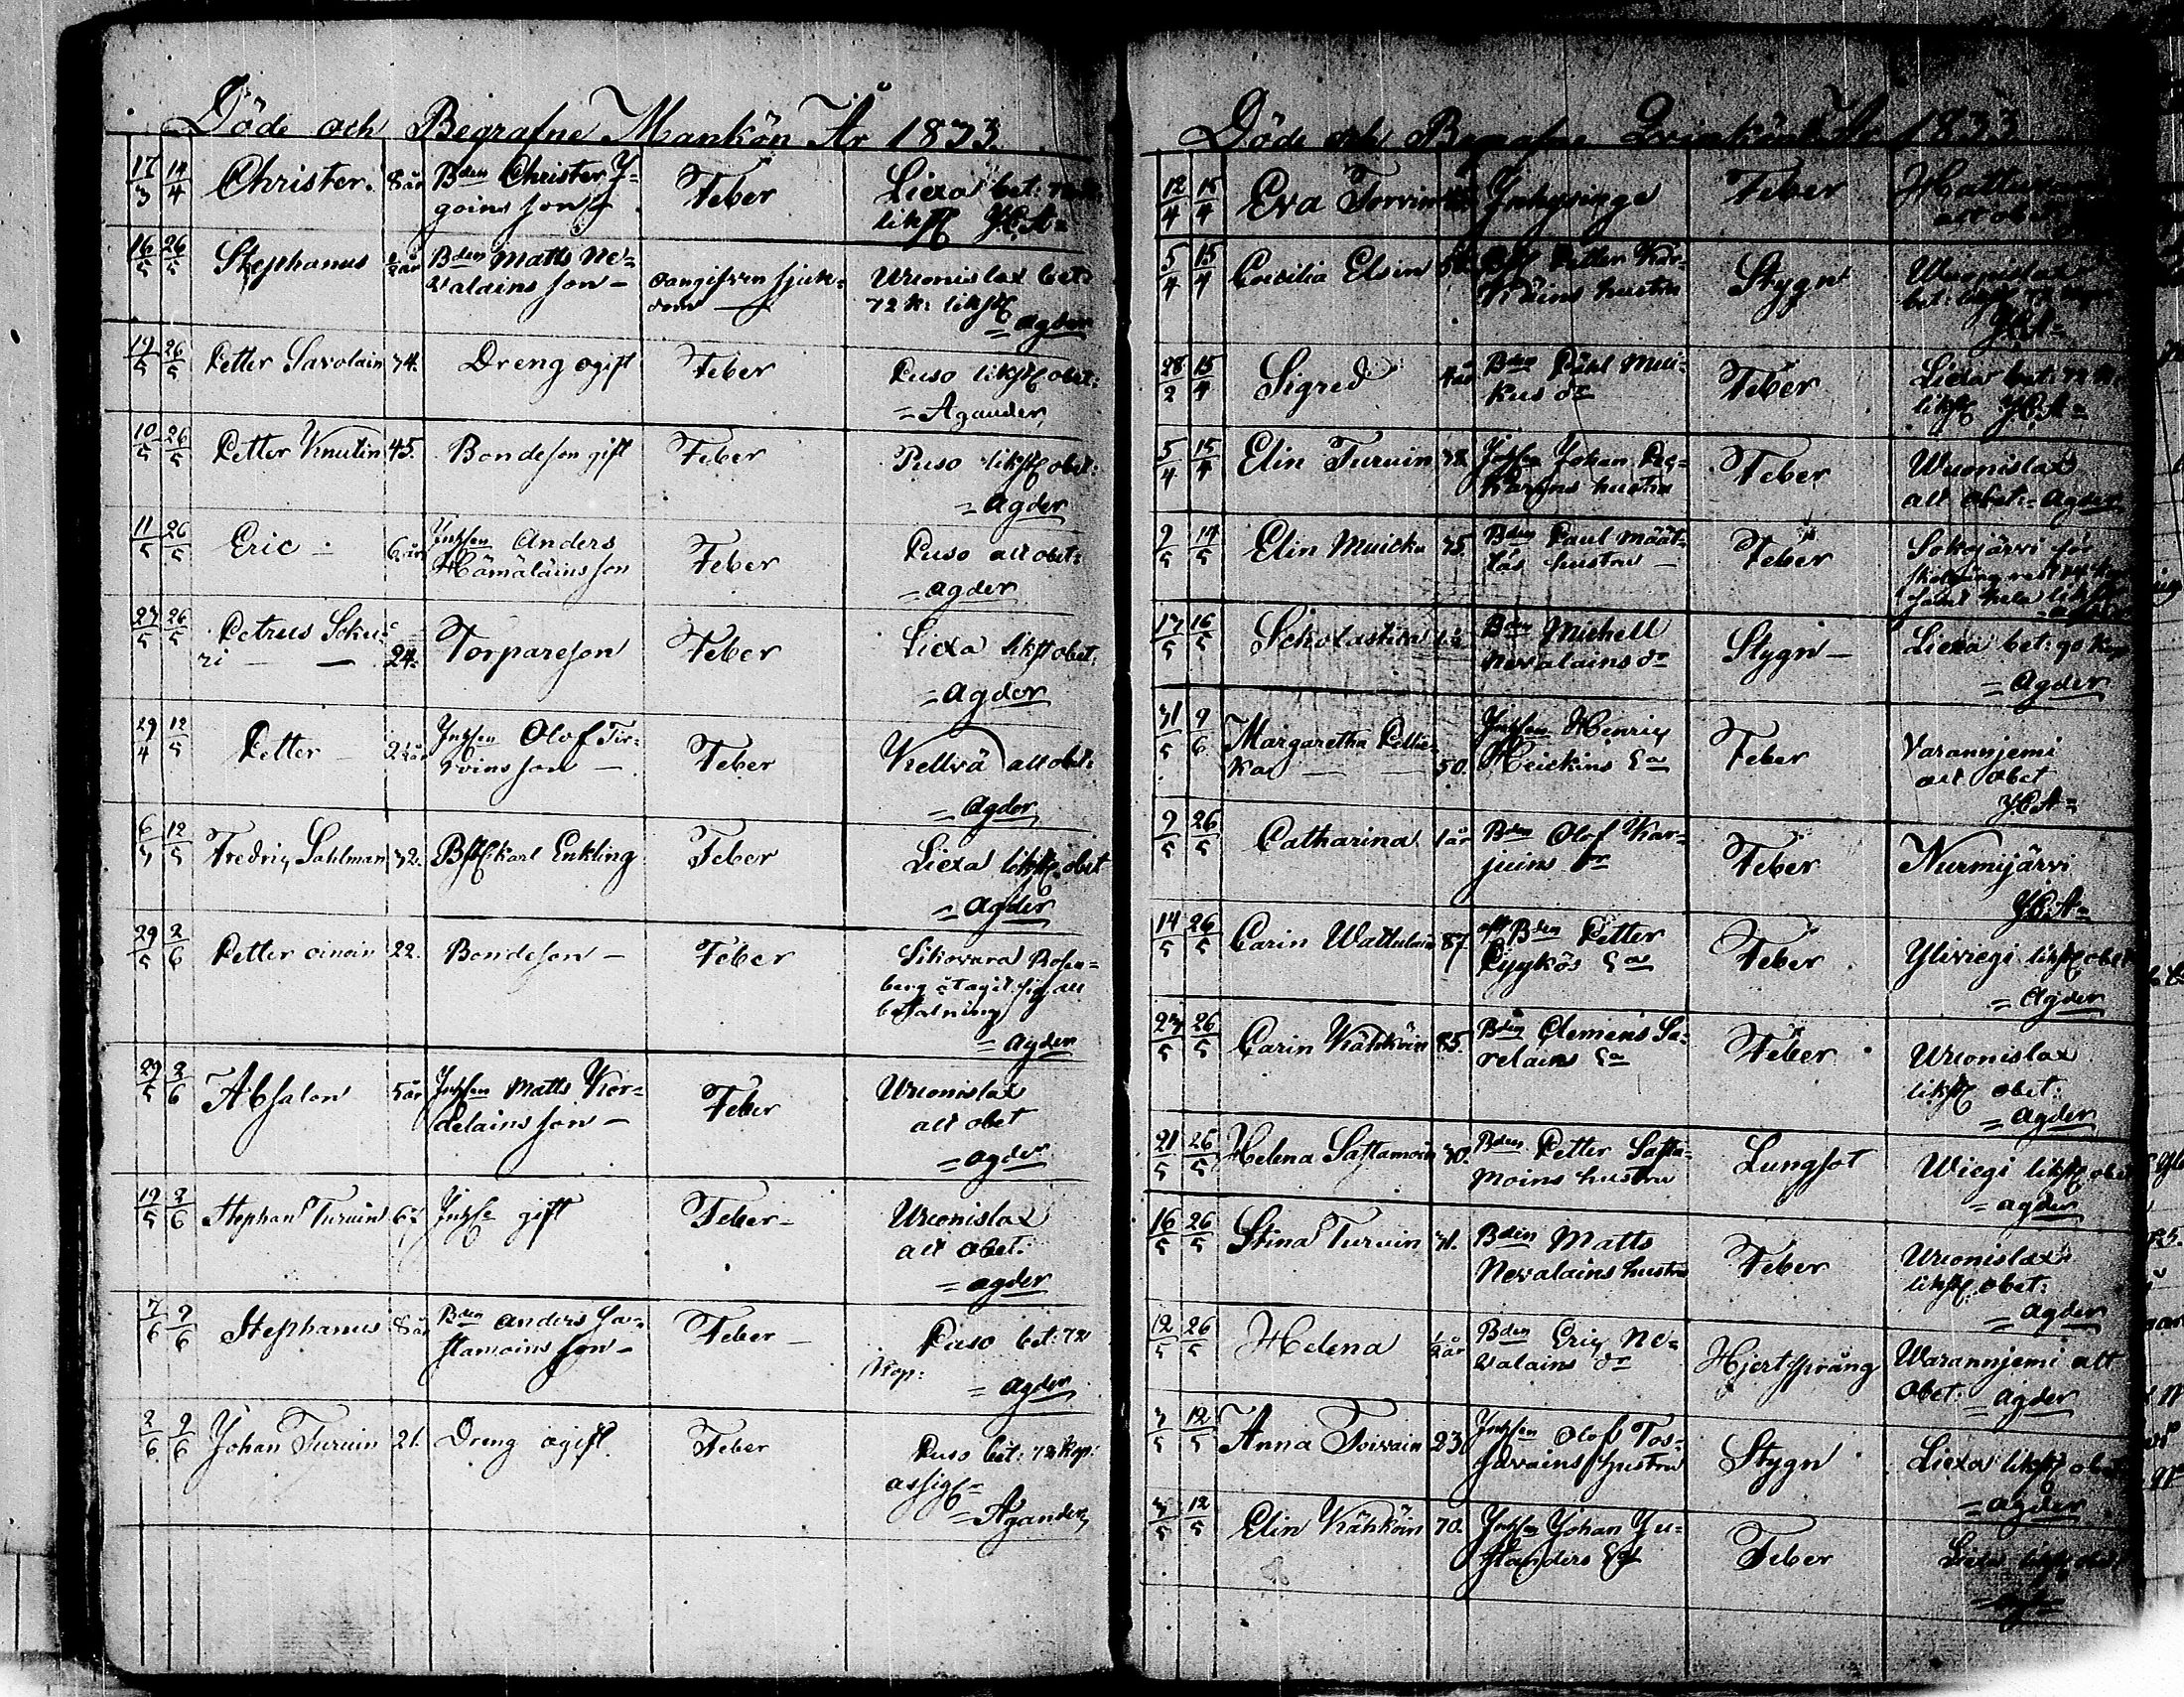 Döde och Begrafne Mankön År 1833.
17/3 14/4 Christer. 8 år Bden Christer Y=
goins son Feber Liexa bet: 72 k:
likst J.C.A=
16/5 26/5 Stephanus 1/2 år Bden Matts Ne=
valains son – oangifven sjuk=
dom – Wuonislax bet:
72 k: likst
= Agder
19/5 26/5 Petter Savolain 74. Dreng ogift Feber Puso likst obet:
= Agander
10/5 26/5 Petter Knutin 45. Bondeson gift Feber Puso likst obet:
= Agder
11/5 26/5 Eric – 6 år Inhsen Anders
Hämäläins son Feber Puso all obet:
= Agder
23/5 26/5 Petrus Soku=
ri — — 24. Torpareson Feber Liexa likst obet:
= Agder
29/4 12/5 Petter – 2 1/2 år Inhsen Olof Tir=
voins son – Feber Kellvä all obet:
= Agder
6/3 12/5 Fredric Sahlman 32. Bstkarl Enkling Feber Liexa likst obet
= Agder
29/5 2/6 Petter oinoin 22. Bondeson – Feber Sikovara Rosen=
berg åtagit sig all
betalning
= Agder
29/5 2/6 Absalon 5 år Inhsen Matts Kor=
delains son – Feber Wuonislax
all obet
= Agder
19/5 2/6 Stephan Turuin 67 Inhse gift Feber – Wuonislax
all obet:
= Agder
7/6 9/6 Stephanus 8 år Bden Anders Sa=
stamoins son – Feber – Puso bet: 72
Kop:
= Agder
2/6 9/6 Johan Turuin 21. Dreng ogift. Feber Puso bet: 72 Kop:
assig=
= Agander
Döde och Begrafne Qvinkön År 1833
12/4 15/4 Eva Torvin Inhysinge Feber Hattuvara
all obet
5/4 15/4 Coecilia Elsin Petter Kär=
käins hustru Stygn Wuonislax
bet: likst
J.C.A=
28/2 15/4 Sigred 4 år Bden Påhl Mui=
kus dr Feber Liexa bet: 72 k:
likst J.C.A=
5/4 15/4 Elin Turuin 78. Inhsen Johan Pes=
karins hustru Feber Wuonislax
all obet: = Agder
9/5 14/5 Elin Muicku 75. Bden Paul Määt=
täs hustru – Feber Sokojärvi för
17/5 16/5 Scholastica Bden Michell
Nevalains dr Stygn – Liexa bet: 90 Kop
= Agder
31/5 9/6 Margaretha Pellie=
ka — — 50. Inhsen Henric
Heickins Ea Feber Varannjemi
all obet
J.C.A=
9/5 26/5 Catharina 1 år Bden Olof Kar=
juins dr Feber Nurmijärvi
J.C.A=
14/5 26/5 Carin Wattulain 87. afl Bden Petter
Pyykös Ea Feber Yliviegi likst obet
= Agder
23/5 26/5 Carin Kähköin 85. Bden Clemens Sa=
relains Ea Feber Wuonislax
likst obet:
= Agder
21/5 26/5 Helena Sastamoin 70. Bden Petter Sasta=
moins hustru Lungsot Wiegi likst obet
= Agder
16/5 26/5 Stina Turuin 71. Bden Matts
Nevalains hustru Feber Wuonislax
likst obet:
= Agder
12/5 26/5 Helena 1/2 år Bden Eric Ne=
valains dr Hjertsprång Warannjemi all
obet: = Agder
3/5 12/5 Anna Toivain 23. Inhsen Olof Tos=
savains hustru Stygn Liexa likst obet
= Agder
3/5 12/5 Elin Kähköin 70. Inhsen Johan Ju=
standers Ea Feber Liexa likst obet